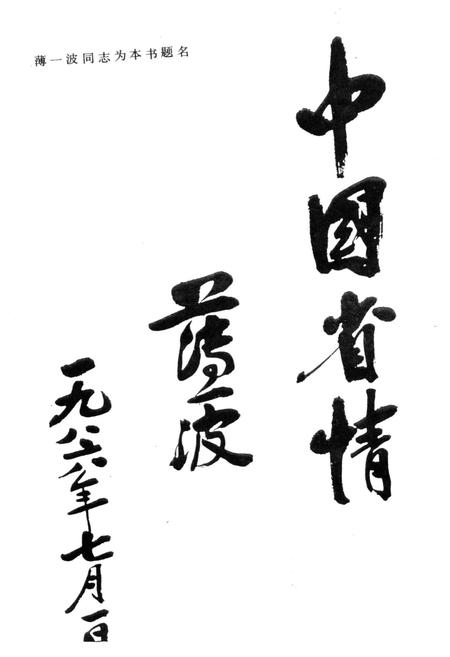 薄一波同志为本书题名
中國省情
薄一波
一九八六年七月一日